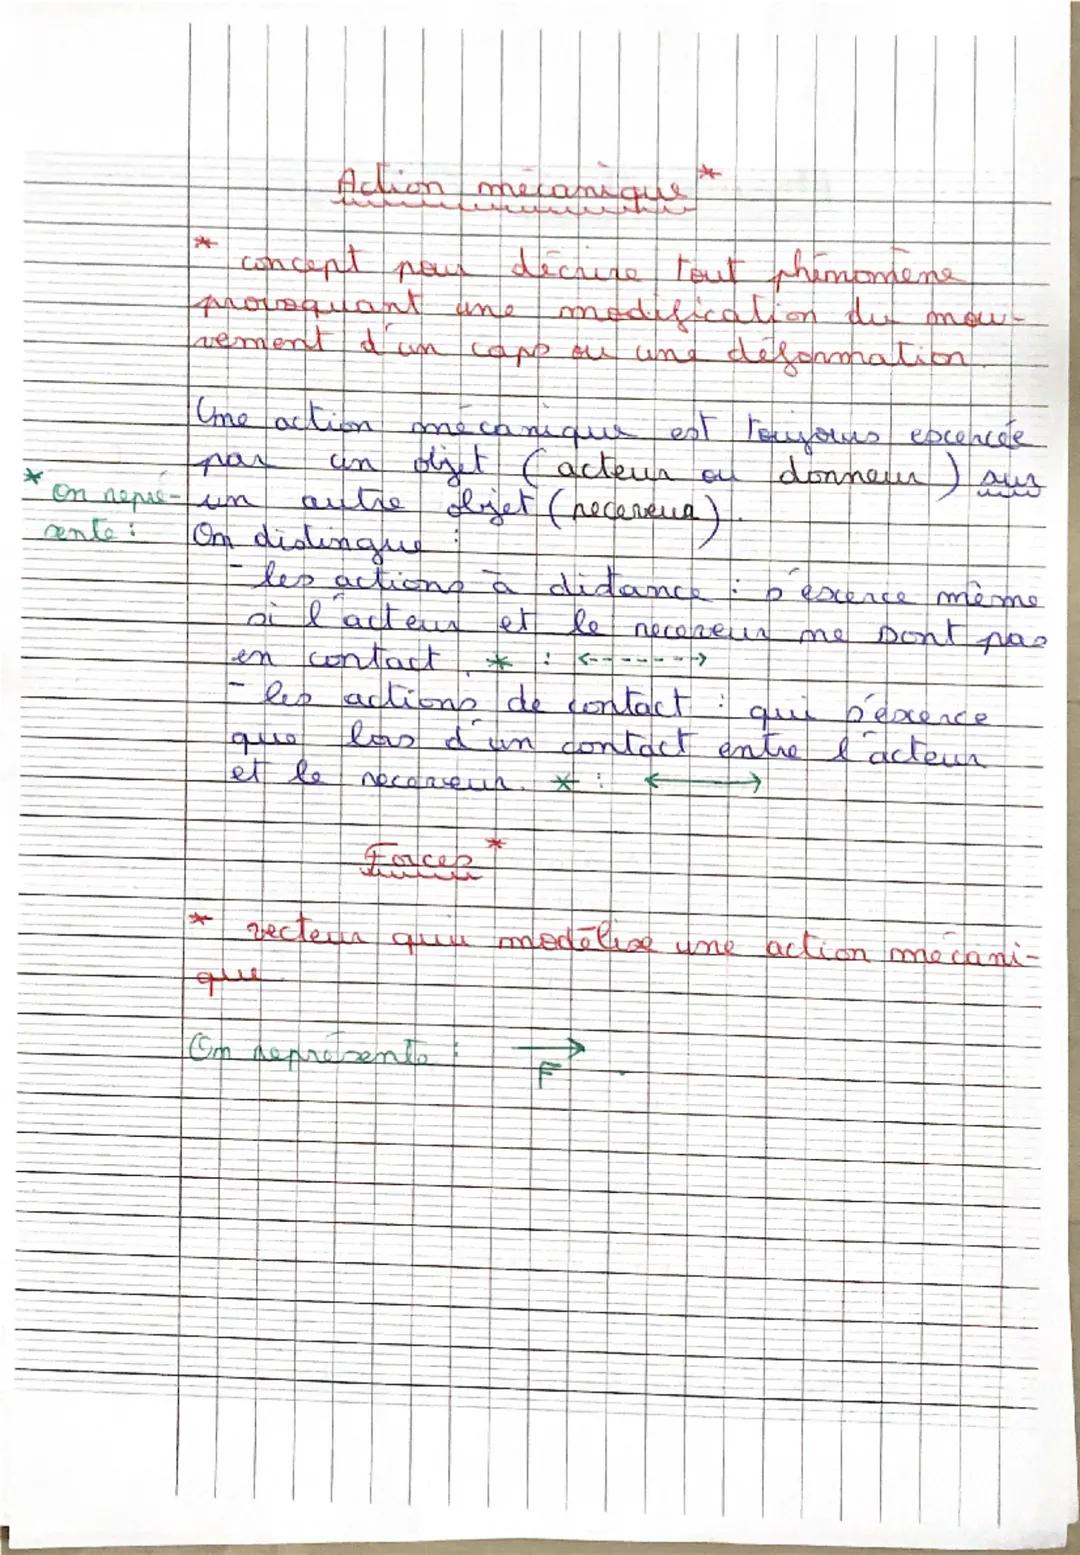 Action mécanique*
* concept pour décrire tout phénomène
provoquant une modification du mou-
vement d'un corps ou une déformation.
Une action mécanique est toujours excercée
par un objet (acteur ou donneur) sur
un autre objet (receveur).
* on repré-
sente :
On distingue :
- les actions à distance : s'exerce même
si l'acteur et le receveur ne sont pas
en contact * : <------>
- les actions de contact : qui s'exerce
que lors d'un contact entre l'acteur
et le receveur. * : <—>
Forces*
* vecteur qui modélise une action mécani-
que
On représente : →
F